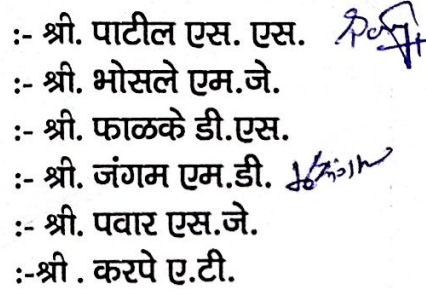 :- श्री. पाटील एस. एस.
:- श्री. भोसले एम.जे.
:- श्री. फाळके डी.एस.
:- श्री. जंगम एम.डी.
:- श्री. पवार एस.जे.
:-श्री . करपे ए.टी.